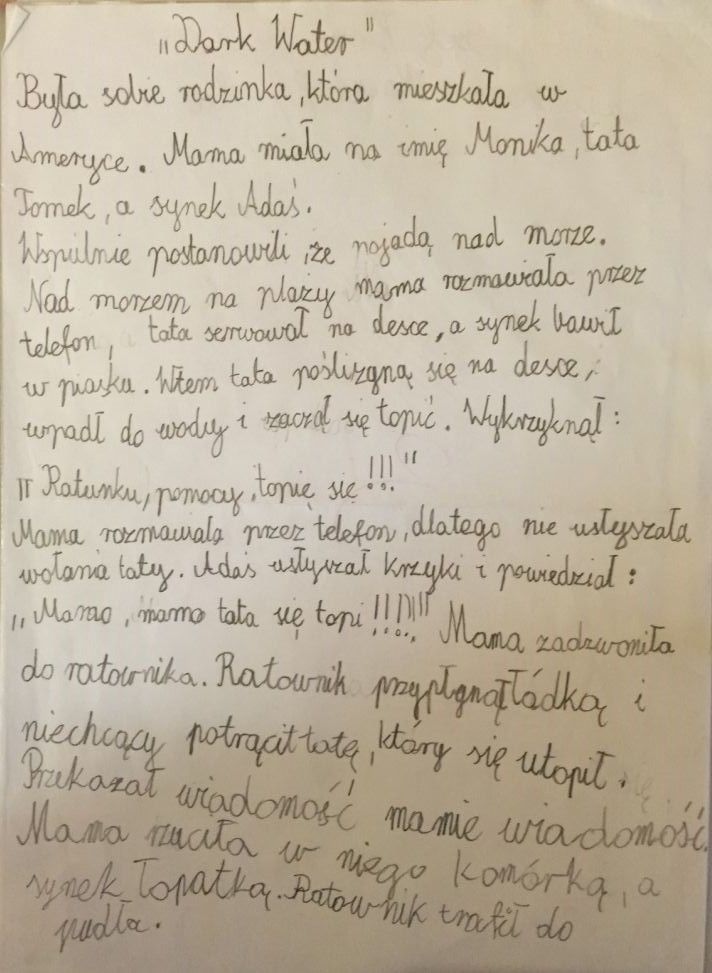 „Dark Water"
Była sobie rodzinka, która mieszkała w
Ameryce. Mama miała na imię Monika, tata
Tomek, a synek Adaś.
Wspulnie postanowili, że pojadą nad morze.
Nad morzem na plaży mama rozmawiała przez
telefon, tata serwował na desce, a synek bawił
w piasku. Wtem tata poślizgną się na desce,
wpadł do wody i zaczął się topić. Wykrzyknął:
„Ratunku, pomocy, topię się!!!"
Mama rozmawiala przez telefon, dlatego nie usłyszała
wołania taty. Adaś usłyszał krzyki i powiedział:
„Mamo, mamo tata się topi!!!!!" Mama zadzwoniła
do ratownika. Ratownik przypłynął łódką i
niechcący potrącił tatę, który się utopił.
Przekazał wiadomość mamie wiadomość.
Mama rzuciła w niego komórką, a
synek łopatką. Ratownik trafił do
pudła.